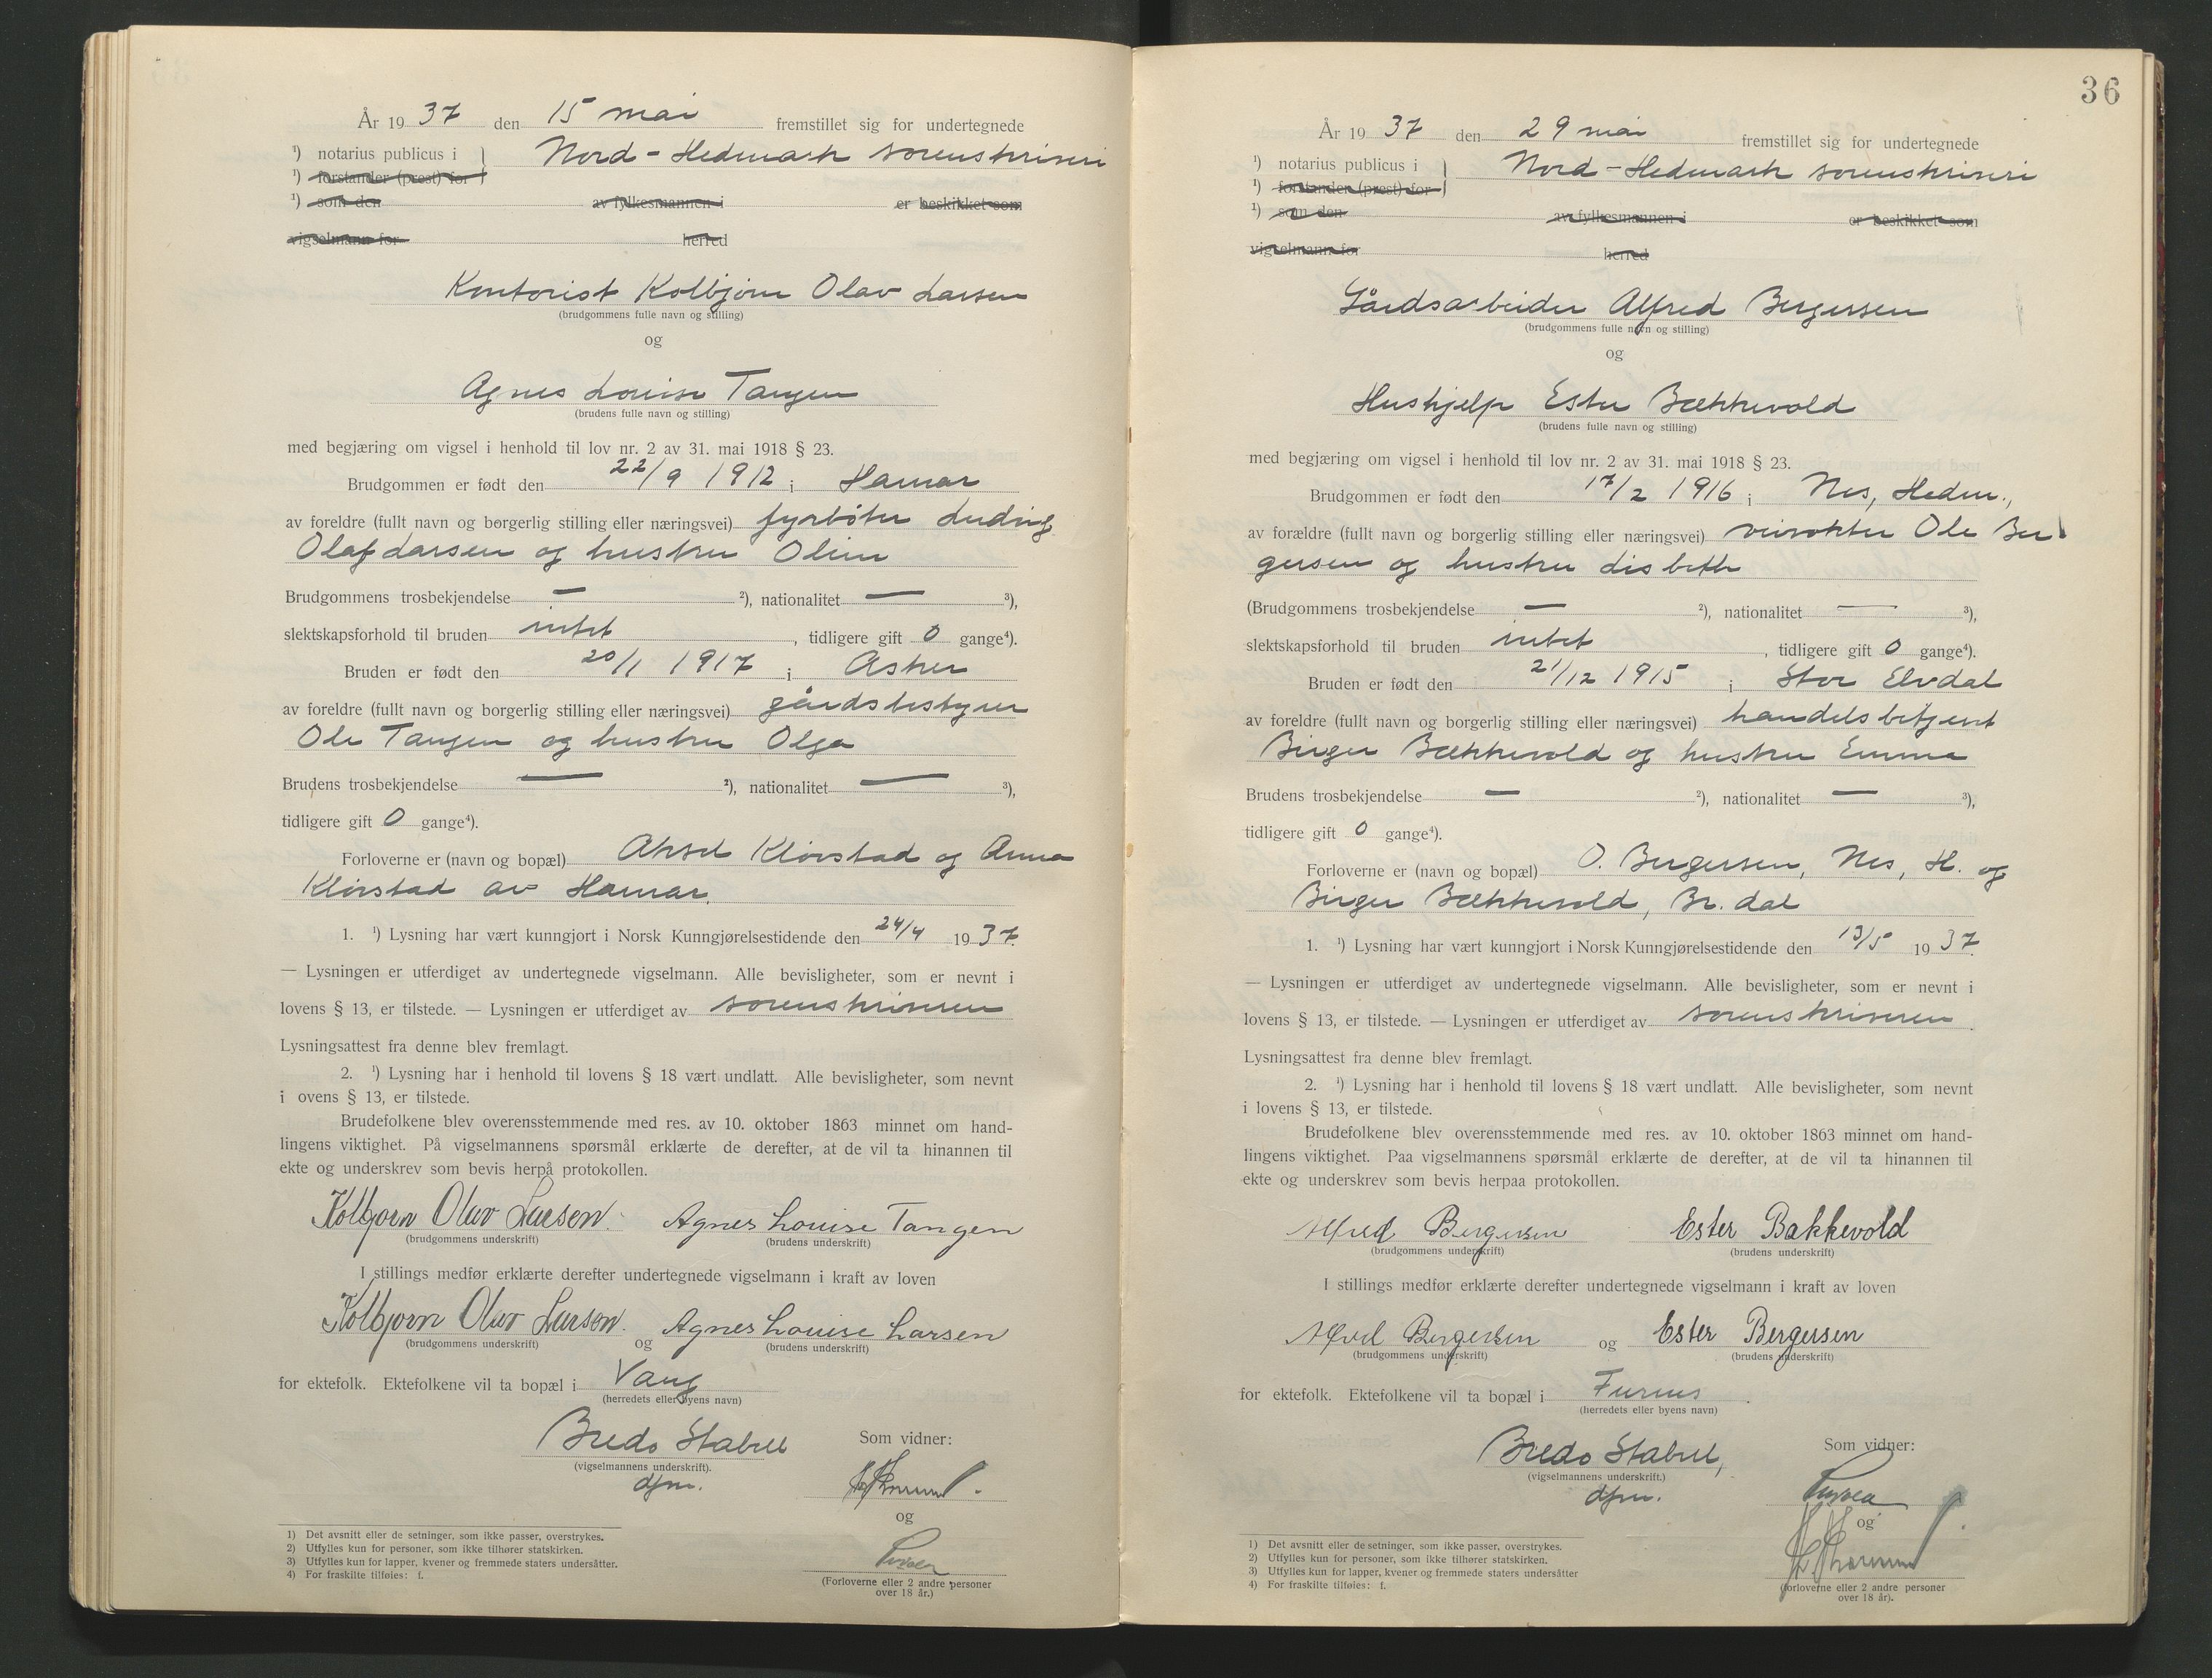 År 1937 den 15 mai fremstillet sig for undertegnede
¹) notarius publicus i } Nord-Hedmark sorenskriveri
¹) forstander (prest) for
¹) som den av fylkesmannen i er beskikket som
vigselmann for herred
Kontorist Kolbjørn Olav Larsen
(brudgommens fulle navn og stilling)
og
Agnes Louise Tangen
(brudens fulle navn og stilling)
med begjæring om vigsel i henhold til lov nr. 2 av 31. mai 1918 § 23.
Brudgommen er født den 22/9 1912 i Hamar
av foreldre (fullt navn og borgerlig stilling eller næringsvei) fyrbøter Ludvig
Olaf Larsen og hustru Oline
Brudgommens trosbekjendelse — ²), nationalitet — ³),
slektskapsforhold til bruden intet, tidligere gift 0 gange⁴).
Bruden er født den 20/1 1917 i Asker
av foreldre (fullt navn og borgerlig stilling eller næringsvei) gårdsbestyrer
Ole Tangen og hustru Olga
Brudens trosbekjendelse — ²), nationalitet — ³),
tidligere gift 0 gange⁴).
Forloverne er (navn og bopæl) Aksel Kløvstad og Anna
Kløvstad av Hamar.
1. ¹) Lysning har vært kunngjort i Norsk Kunngjørelsestidende den 24/4 1937.
— Lysningen er utferdiget av undertegnede vigselmann. Alle bevisligheter, som er nevnt i
lovens § 13, er tilstede. — Lysningen er utferdiget av sorenskriveren
Lysningsattest fra denne blev fremlagt.
2. ¹) Lysning har i henhold til lovens § 18 vært undlatt. Alle bevisligheter, som nevnt
i ovens § 13, er tilstede.
Brudefolkene blev overensstemmende med res. av 10. oktober 1863 minnet om hand-
lingens viktighet. På vigselmannens spørsmål erklærte de derefter, at de vil ta hinannen til
ekte og underskrev som bevis herpå protokollen.
Kolbjørn Olav Larsen. Agnes Louise Tangen
(brudgommens underskrift) (brudens underskrift)
I stillings medfør erklærte derefter undertegnede vigselmann i kraft av loven
Kolbjørn Olav Larsen. og Agnes Louise Larsen
(brudgommens underskrift) (brudens underskrift)
for ektefolk. Ektefolkene vil ta bopæl i Vang
(herredets eller byens navn)
Bredo Stabell Som vidner:
(vigselmannens underskrift).
dfm.
og
(Forloverne eller 2 andre personer
over 18 år.)
1) Det avsnitt eller de setninger, som ikke passer, overstrykes.
2) Utfylles kun for personer, som ikke tilhører statskirken.
3) Utfylles kun for lapper, kvener og fremmede staters undersåtter.
4) For fraskilte tilføies: f.
36
År 1937 den 29 mai fremstillet sig for undertegnede
¹) notarius publicus i } Nord-Hedmark sorenskriveri
¹) forstander (prest) for
¹) som den av fylkesmannen i er beskikket som
vigselmann for herred
Gårdsarbeider Alfred Bergersen
(brudgommens fulle navn og stilling)
og
Hushjelp Ester Bækkevold
(brudens fulle navn og stilling)
med begjæring om vigsel i henhold til lov nr. 2 av 31. mai 1918 § 23.
Brudgommen er født den 17/2 1916 i Nes, Hedm.,
av forældre (fullt navn og borgerlig stilling eller næringsvei) veivokter Ole Ber-
gersen og hustru Lisbeth
(Brudgommens trosbekjendelse — ²), nationalitet — ³),
slektskapsforhold til bruden intet, tidligere gift 0 gange⁴).
Bruden er født den 21/12 1915 i Stor Elvdal
av foreldre (fullt navn og borgerlig stilling eller næringsvei) handelsbetjent
Birger Bækkevold og hustru Emma
Brudens trosbekjendelse — ²), nationalitet — ³),
tidligere gift 0 gange⁴).
Forloverne er (navn og bopæl) O. Bergersen, Nes, H. og
Birger Bækkevold, Br.dal
1. ¹) Lysning har vært kunngjort i Norsk Kunngjørelsestidende den 13/5 1937.
— Lysningen er utferdiget av undertegnede vigselmann. Alle bevisligheter, som er nevnt i
lovens § 13, er tilstede. — Lysningen er utferdiget av sorenskriveren.
Lysningsattest fra denne blev fremlagt.
2. ¹) Lysning har i henhold til lovens § 18 vært undlatt. Alle bevisligheter, som nevnt
i lovens § 13, er tilstede.
Brudefolkene blev overensstemmende med res. av 10. oktober 1863 minnet om hand-
lingens viktighet. Paa vigselmannens spørsmål erklærte de derefter, at de vil ta hinannen til
ekte og underskrev som bevis herpaa protokollen.
Alfred Bergersen Ester Bakkevold
(brudgommens underskrift) (brudens underskrift)
I stillings medfør erklærte derefter undertegnede vigselmann i kraft av loven
Alfred Bergersen og Ester Bergersen
(brudgommens underskrift) (brudens underskrift)
for ektefolk. Ektefolkene vil ta bopæl i Furnes.
(herredets eller byens navn)
Bredo Stabell, Som vidner:
(vigselmannens underskrift.)
dfm.
og
(forloverne eller 2 andre personer
over 18 år).
1) Det avsnitt eller de setninger, som ikke passer, overstrykes.
2) Utfylles kun for personer, som ikke tilhører statskirken.
3) Utfylles kun for lapper, kvener og fremmede staters undersåtter
4) For fraskilte tilføies: f.